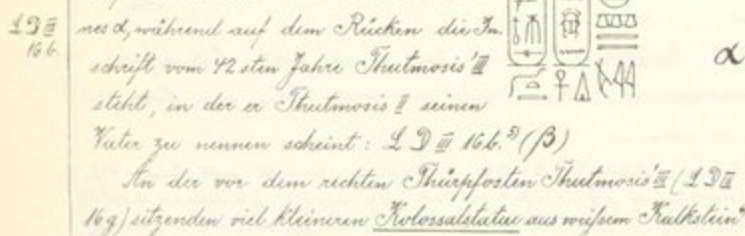 L D III
16 b.
nes α, während auf dem Rücken die In-
schrift vom 42sten Jahre Thutmosis' III
steht, in der er Thutmosis II seinen
Vater zu nennen scheint: L D III 16.b. (β)
α
An der vor dem rechten Thürpfosten Thutmosis' III (L D III
16 g) sitzenden viel kleineren Kolossalstatue aus weißem Kalkstein